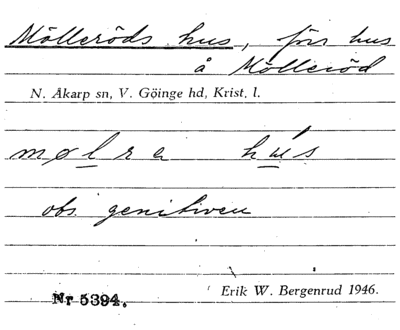 Mölleröds hus, förr hus
å Mölleröd
N. Åkarp sn, V. Göinge hd, Krist. l.
mølra hús
obs. genitiven
Nr 5394.
Erik W. Bergenrud 1946.